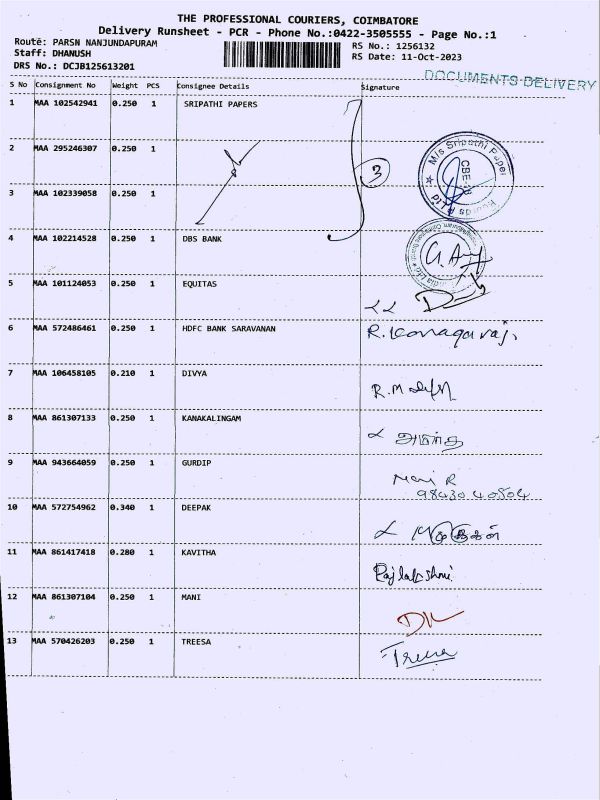 THE PROFESSIONAL COURIERS, COIMBATORE
Delivery Runsheet - PCR - Phone No.:0422-3505555 - Page No.:1
Route: PARSN NANJUNDAPURAM
Staff: DHANUSH
DRS No.: DCJB125613201
RS No.: 1256132
RS Date: 11-Oct-2023
DOCUMENTS DELIVERY
S No Consignment No Weight PCS Consignee Details Signature
1 MAA 102542941 0.250 1 SRIPATHI PAPERS
2 MAA 295246307 0.250 1
3
M/s Sripathi Paper
3 MAA 102339058 0.250 1
4 MAA 102214528 0.250 1 DBS BANK
5 MAA 101124053 0.250 1 EQUITAS
6 MAA 572486461 0.250 1 HDFC BANK SARAVANAN R. Kanagaraj.
7 MAA 106458105 0.210 1 DIVYA
8 MAA 861307133 0.250 1 KANAKALINGAM
9 MAA 943664059 0.250 1 GURDIP Mani R
98430 40504
10 MAA 572754962 0.340 1 DEEPAK
11 MAA 861417418 0.280 1 KAVITHA Rajlakshmi
12 MAA 861307104 0.250 1 MANI
13 MAA 570426203 0.250 1 TREESA Treesa